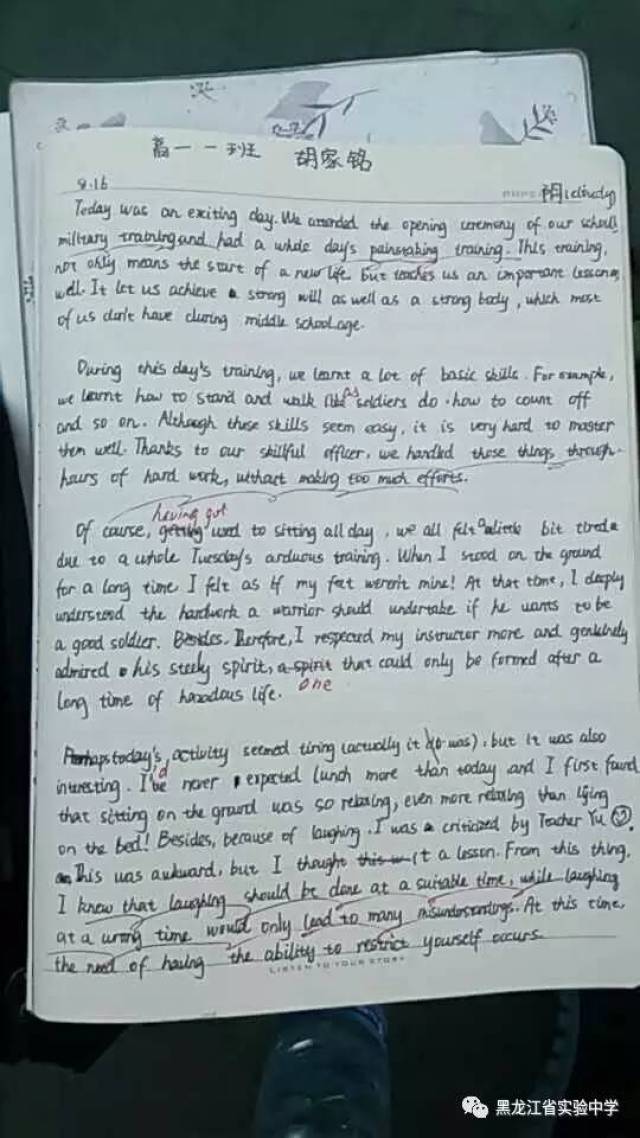 高一一班 胡家铭
9.16
阴 cloudy
Today was an exiting day. We attended the opening ceremony of our school
military training and had a whole day's painstaking training. This training,
not only means the start of a new life but teaches us an important lesson as
well. It let us achieve a strong will as well as a strong body, which most
of us don't have during middle school age.
During this day's training, we learnt a lot of basic skills. For example,
we learnt how to stand and walk as soldiers do. how to count off
and so on. Although these skills seem easy, it is very hard to master
them well. Thanks to our skillful officer, we handled those things through
hours of hard work, without making too much efforts.
having got
Of course, getting used to sitting all day, we all felt a little bit tired
due to a whole Tuesday's arduous training. When I stood on the ground
for a long time, I felt as if my feet weren't mine! At that time, I deeply
understood the hardwork a warrior should undertake if he wants to be
a good soldier. Besides. Therefore, I respected my instructor more and genuinely
admired his steely spirit, a spirit that could only be formed after a
one
long time of hazadous life.
Perhaps today's activity seemed tiring (actually it was), but it was also
interesting. I'd never expected lunch more than today and I first found
that sitting on the ground was so relaxing, even more relaxing than lying
on the bed! Besides, because of laughing, I was criticized by Teacher Yu
This was awkward, but I thought it a lesson. From this thing,
I knew that laughing should be done at a suitable time, while laughing
at a wrong time would only lead to many misunderstandings. At this time,
the need of having the ability to restrict yourself occurs.
LISTEN TO YOUR STORY
黑龙江省实验中学